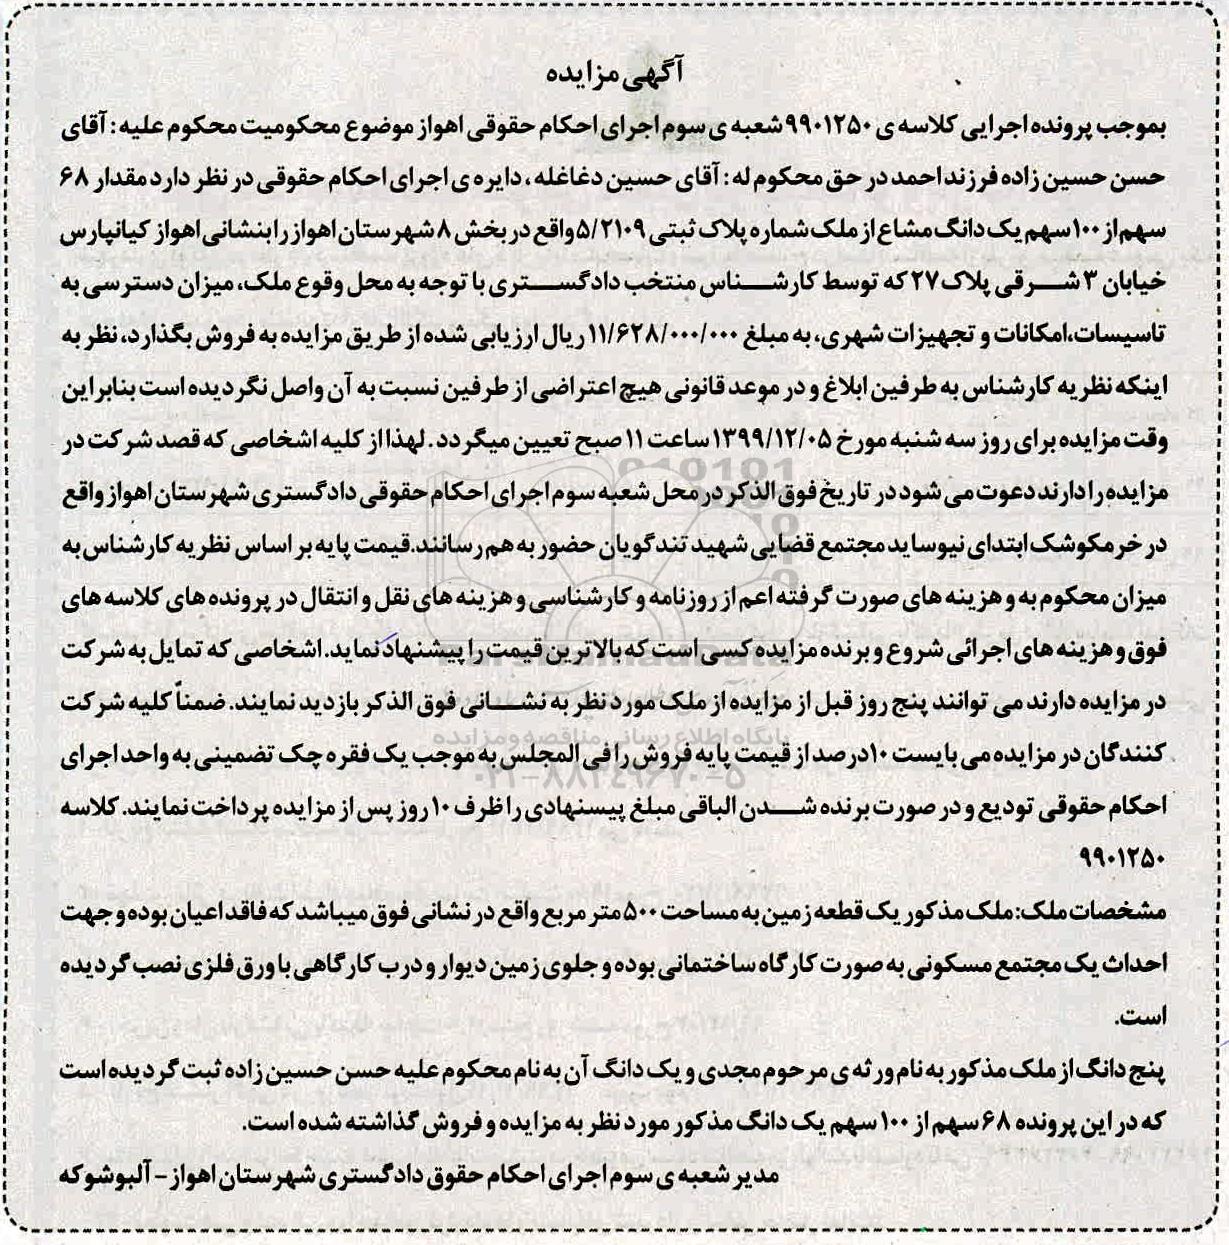 آگهی مزایده
بموجب پرونده اجرایی کلاسه ی ۹۹۰۱۲۵۰ شعبه ی سوم اجرای احکام حقوقی اهواز موضوع محکومیت محکوم علیه : آقای
حسن حسین زاده فرزند احمد در حق محکوم له : آقای حسین دغاغله ، دایره ی اجرای احکام حقوقی در نظر دارد مقدار ۶۸
سهم از ۱۰۰ سهم یک دانگ مشاع از ملک شماره پلاک ثبتی ۵/۲۱۰۹ واقع در بخش ۸ شهرستان اهواز را بنشانی اهواز کیانپارس
خیابان ۳ شرقی پلاک ۲۷ که توسط کارشناس منتخب دادگستری با توجه به محل وقوع ملک، میزان دسترسی به
تاسیسات،امکانات و تجهیزات شهری، به مبلغ ۱۱/۶۲۸/۰۰۰/۰۰۰ ریال ارزیابی شده از طریق مزایده به فروش بگذارد، نظر به
اینکه نظریه کارشناس به طرفین ابلاغ و در موعد قانونی هیچ اعتراضی از طرفین نسبت به آن واصل نگردیده است بنابراین
وقت مزایده برای روز سه شنبه مورخ ۱۳۹۹/۱۲/۰۵ ساعت ۱۱ صبح تعیین میگردد. لهذا از کلیه اشخاصی که قصد شرکت در
مزایده را دارند دعوت می شود در تاریخ فوق الذکر در محل شعبه سوم اجرای احکام حقوقی دادگستری شهرستان اهواز واقع
در خرمکوشک ابتدای نیوساید مجتمع قضایی شهید تندگویان حضور به هم رسانند.قیمت پایه بر اساس نظریه کارشناس به
میزان محکوم به و هزینه های صورت گرفته اعم از روزنامه و کارشناسی و هزینه های نقل و انتقال در پرونده های کلاسه های
فوق و هزینه های اجرائی شروع و برنده مزایده کسی است که بالاترین قیمت را پیشنهاد نماید. اشخاصی که تمایل به شرکت
در مزایده دارند می توانند پنج روز قبل از مزایده از ملک مورد نظر به نشانی فوق الذکر بازدید نمایند. ضمناً کلیه شرکت
کنندگان در مزایده می بایست ۱۰ درصد از قیمت پایه فروش را فی المجلس به موجب یک فقره چک تضمینی به واحد اجرای
احکام حقوقی تودیع و در صورت برنده شدن الباقی مبلغ پیسنهادی را ظرف ۱۰ روز پس از مزایده پرداخت نمایند. کلاسه
۹۹۰۱۲۵۰
مشخصات ملک: ملک مذکور یک قطعه زمین به مساحت ۵۰۰ متر مربع واقع در نشانی فوق میباشد که فاقد اعیان بوده و جهت
احداث یک مجتمع مسکونی به صورت کارگاه ساختمانی بوده و جلوی زمین دیوار و درب کارگاهی با ورق فلزی نصب گردیده
است.
پنج دانگ از ملک مذکور به نام ورثه ی مرحوم مجدی و یک دانگ آن به نام محکوم علیه حسن حسین زاده ثبت گردیده است
که در این پرونده ۶۸ سهم از ۱۰۰ سهم یک دانگ مذکور مورد نظر به مزایده و فروش گذاشته شده است.
مدیر شعبه ی سوم اجرای احکام حقوق دادگستری شهرستان اهواز - آلبوشوکه
پایگاه اطلاع رسانی مناقصه و مزایده
۰۲۱-۸۸۳۴۹۶۷۰-۵